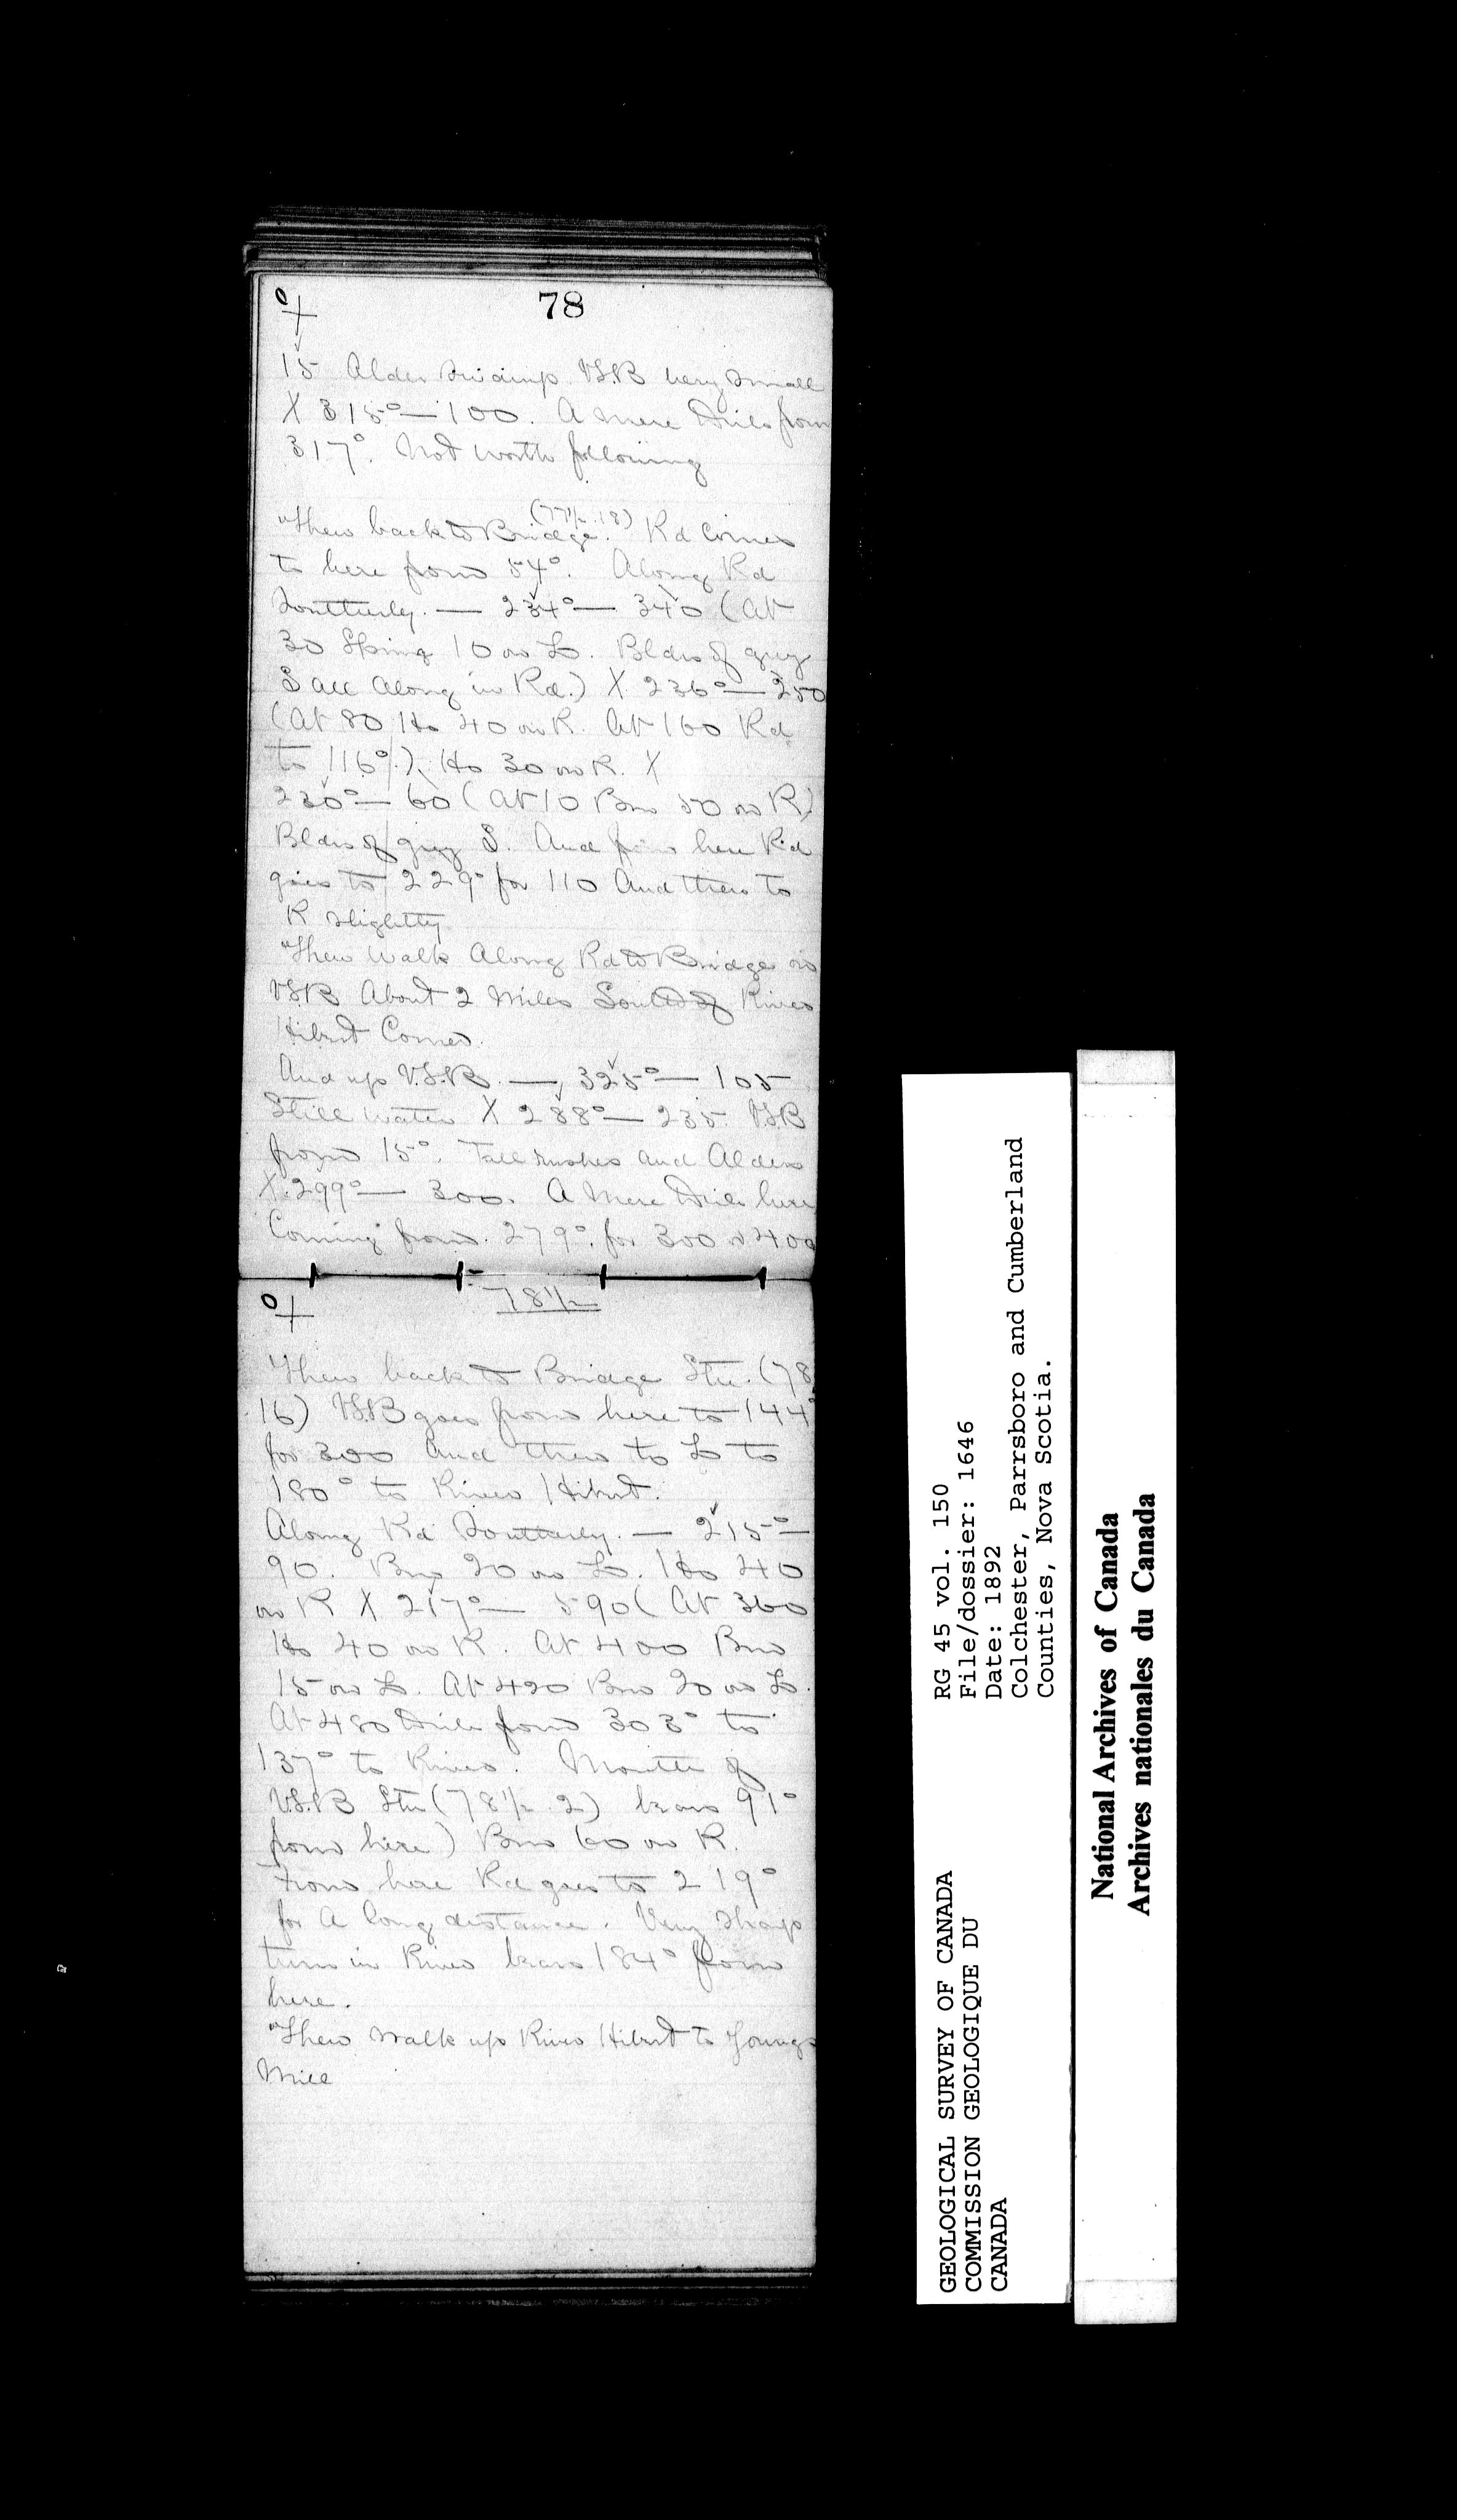 78
15 Alder swamp V.S.B very small
X 315° — 100. A mere Drile from
317°. Not worth following
Then back to Bridge. (77½.18) Rd Comes
to here from 54°. Along Rd
Southerly. — 234° — 340 (At
30 Spring 10 on L. Bldrs of grey
S all Along in Rd.) X. 236° — 250
(At 80 Ho 40 on R. At 160 Rd
to 116°). Ho 30 on R. X
230° — 60 (At 10 Brn 50 on R)
Bldrs of grey S. And from here Rd
goes to 229° for 110 And then to
R slightly
Then Walk Along Rd to Bridge on
V.S.B About 2 Miles South of River
Hibert Corner.
And up V.S.B. — 325° — 105
Still water X 288° — 235. V.S.B
from 15°. Tall rushes and Alders
X. 299° — 300. A Mere Drile here
Coming from. 279°. for 300 or 400
78½
Then back to Bridge Stn. (78.
16) V.S.B goes from here to 144°
for 300 And then to L to
180° to River Hibert.
Along Rd Southerly. — 215° —
90. Brn 20 on L. Ho 40
on R X 217° — 590 (At 360
Ho 40 on R. At 400 Brn
15 on L. At 420 Brn 20 on L.
At 480 Drile from 303° to
137° to River. Mouth of
V.S.B Stn (78½.2) bears 91°
from here) Brn 60 on R.
From here Rd goes to 219°
for A long distance. Very sharp
turn in River bears 184° from
here.
Then Walk up River Hibert to Youngs
Mill
GEOLOGICAL SURVEY OF CANADA
COMMISSION GEOLOGIQUE DU
CANADA
RG 45 vol. 150
File/dossier: 1646
Date: 1892
Colchester, Parrsboro and Cumberland
Counties, Nova Scotia.
National Archives of Canada
Archives nationales du Canada